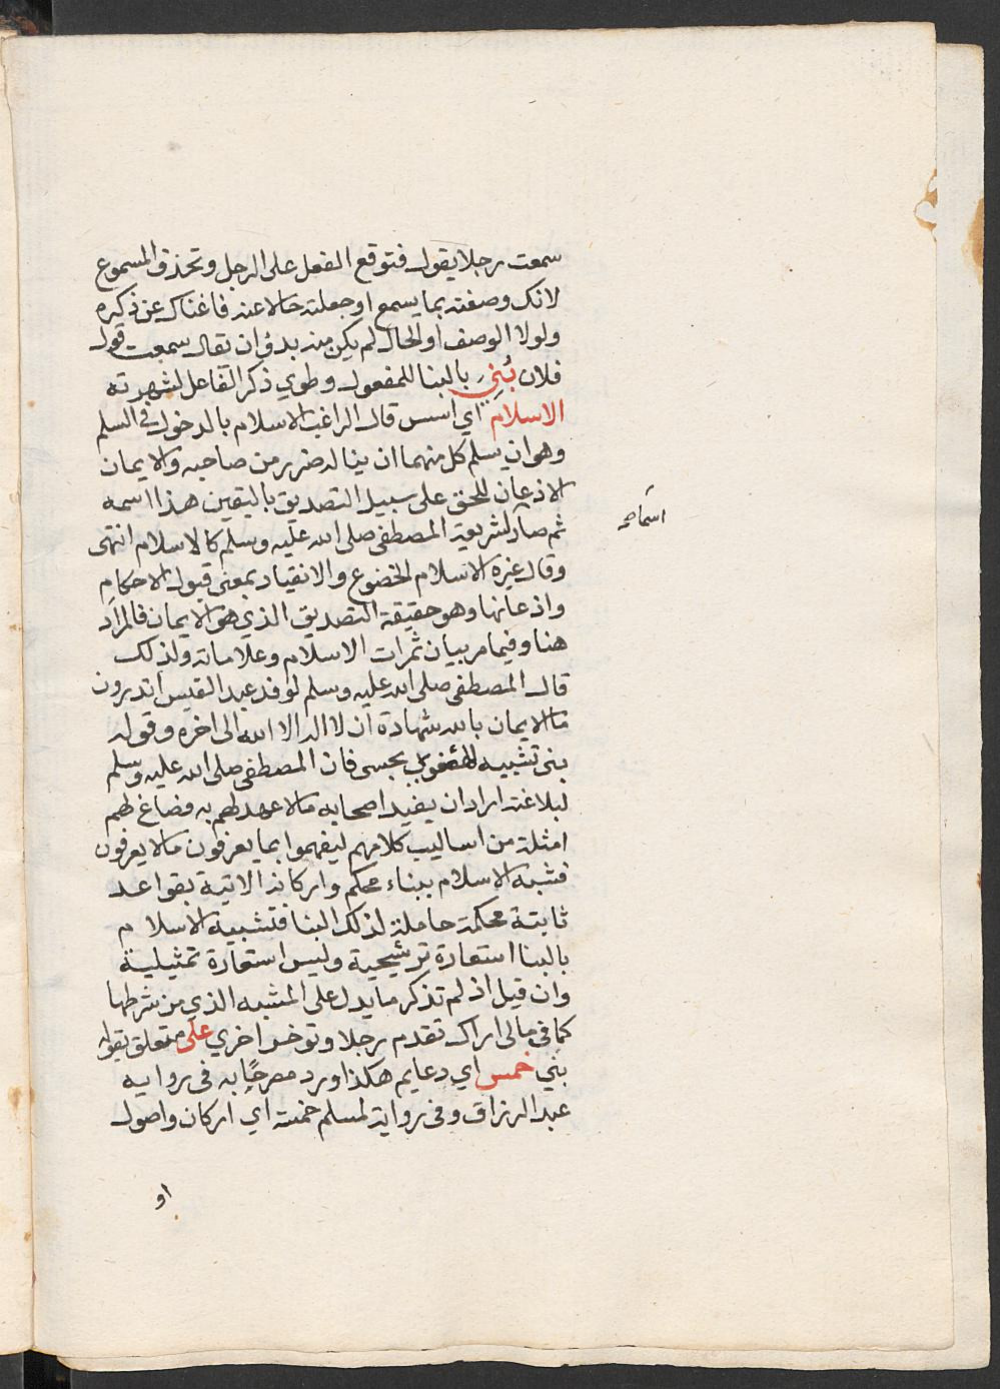 سمعت رجلا يقول فتوقع الفعل على الرجل وتحذف المسموع
لانك وصفته بما يسمع او جعلته حالا عنه فاغناك عن ذكره
ولولا الوصف او الحال لم يكن منه بد وان تقال سمعت قول
فلان بُني بالبنا للمفعول وطوي ذكر الفاعل لشهرته
الاسلام اي اسس قال الراغب الاسلام بالدخول في السلم
وهو ان يسلم كل منهما ان يناله ضرر من صاحبه والايمان
الاذعان للحق على سبيل التصديق باليقين هذا اسمه
ثم صار لشريعة المصطفى صلى الله عليه وسلم كالاسلام انتهى
وقال غيره الاسلام الخضوع والانقياد بمعنى قبول الاحكام
واذعانها وهو حقيقة التصديق الذي هو الايمان فالمراد
هنا وفيما مر بيان ثمرات الاسلام وعلاماته ولذلك
قال المصطفى صلى الله عليه وسلم لوفد عبد القيس اتدرون
ما الايمان بالله شهادة ان لا اله الا الله الى اخره وقوله
بنى تشبيه بحسى فان المصطفى صلى الله عليه وسلم
لبلاغته اراد ان يفيد اصحابه مالا عهد لهم به فصاغ لهم
امثلة من اساليب كلامهم ليفهموا بما يعرفون مالا يعرفون
فشبه الاسلام ببناء محكم واركانه الاتية بقواعد
ثابتة محكمة حاملة لذلك البنا فتشبيه الاسلام
بالبنا استعارة ترشيحية وليس استعارة تمثيلية
وان قيل اذ لم تذكر ما يدل على المشبه الذي من شرطها
كما في مالى اراك تقدم رجلا وتوخر اخري على متعلق بقوله
بني خمس اي دعايم هكذا ورد مصرحًا به في رواية
عبد الرزاق وفي رواية لمسلم خمسة اي اركان واصول
او